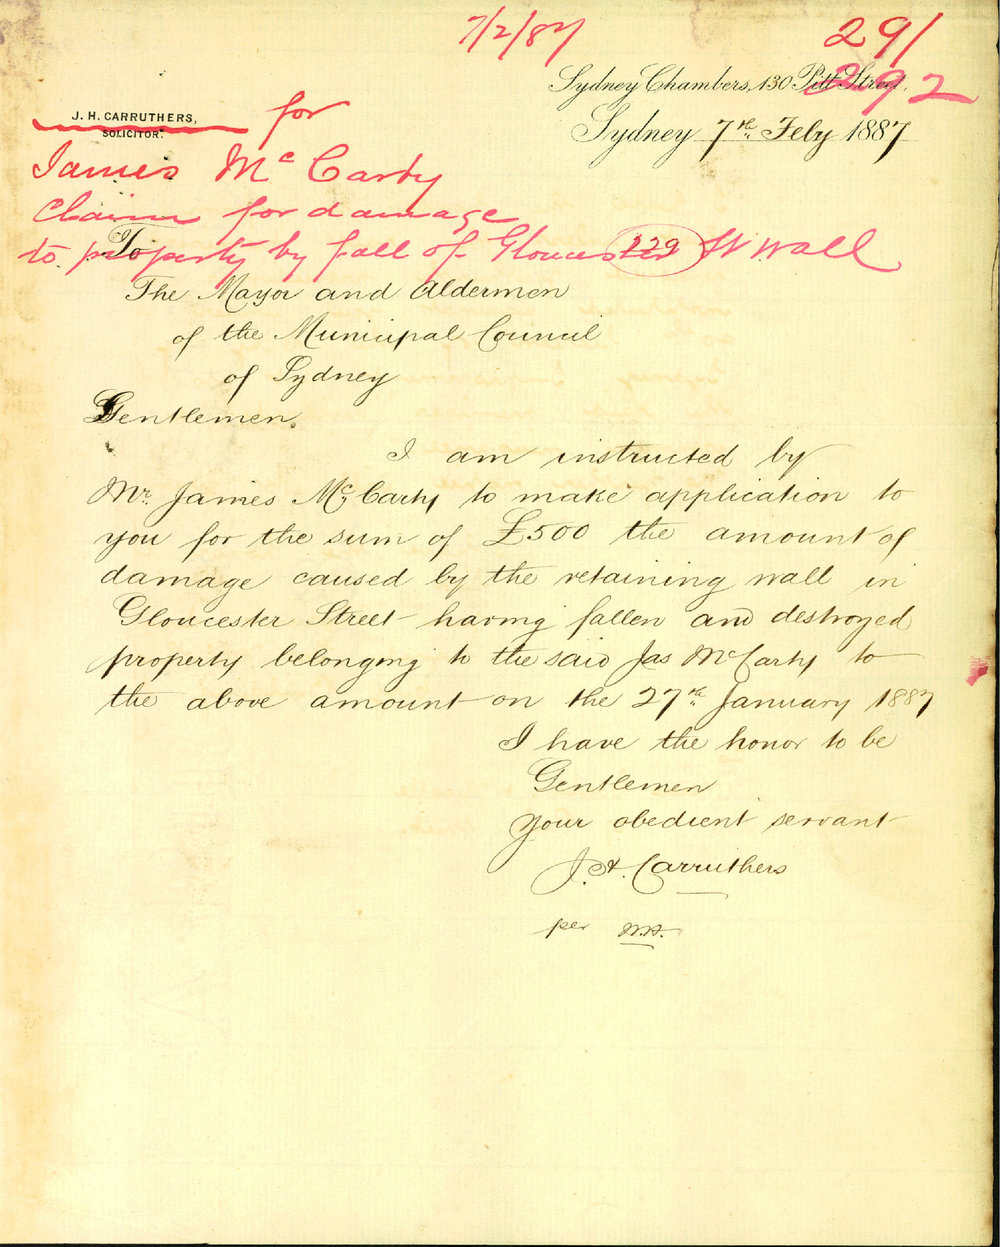 7/2/87
291
292
Sydney Chambers, 130 Pitt Street,
J. H. CARRUTHERS,
SOLICITOR.
for
Sydney 7th Feby 1887
James McCarty
Claim for damage
to property by fall of Gloucester St Wall
229
To
The Mayor and Aldermen
of the Municipal Council
of Sydney
Gentlemen.
I am instructed by
Mr. James McCarty to make application to
you for the sum of £500 the amount of
damage caused by the retaining wall in
Gloucester Street having fallen and destroyed
property belonging to the said Jas McCarty to
the above amount on the 27th January 1887
I have the honor to be
Gentlemen
Your obedient servant
J. H. Carruthers
per